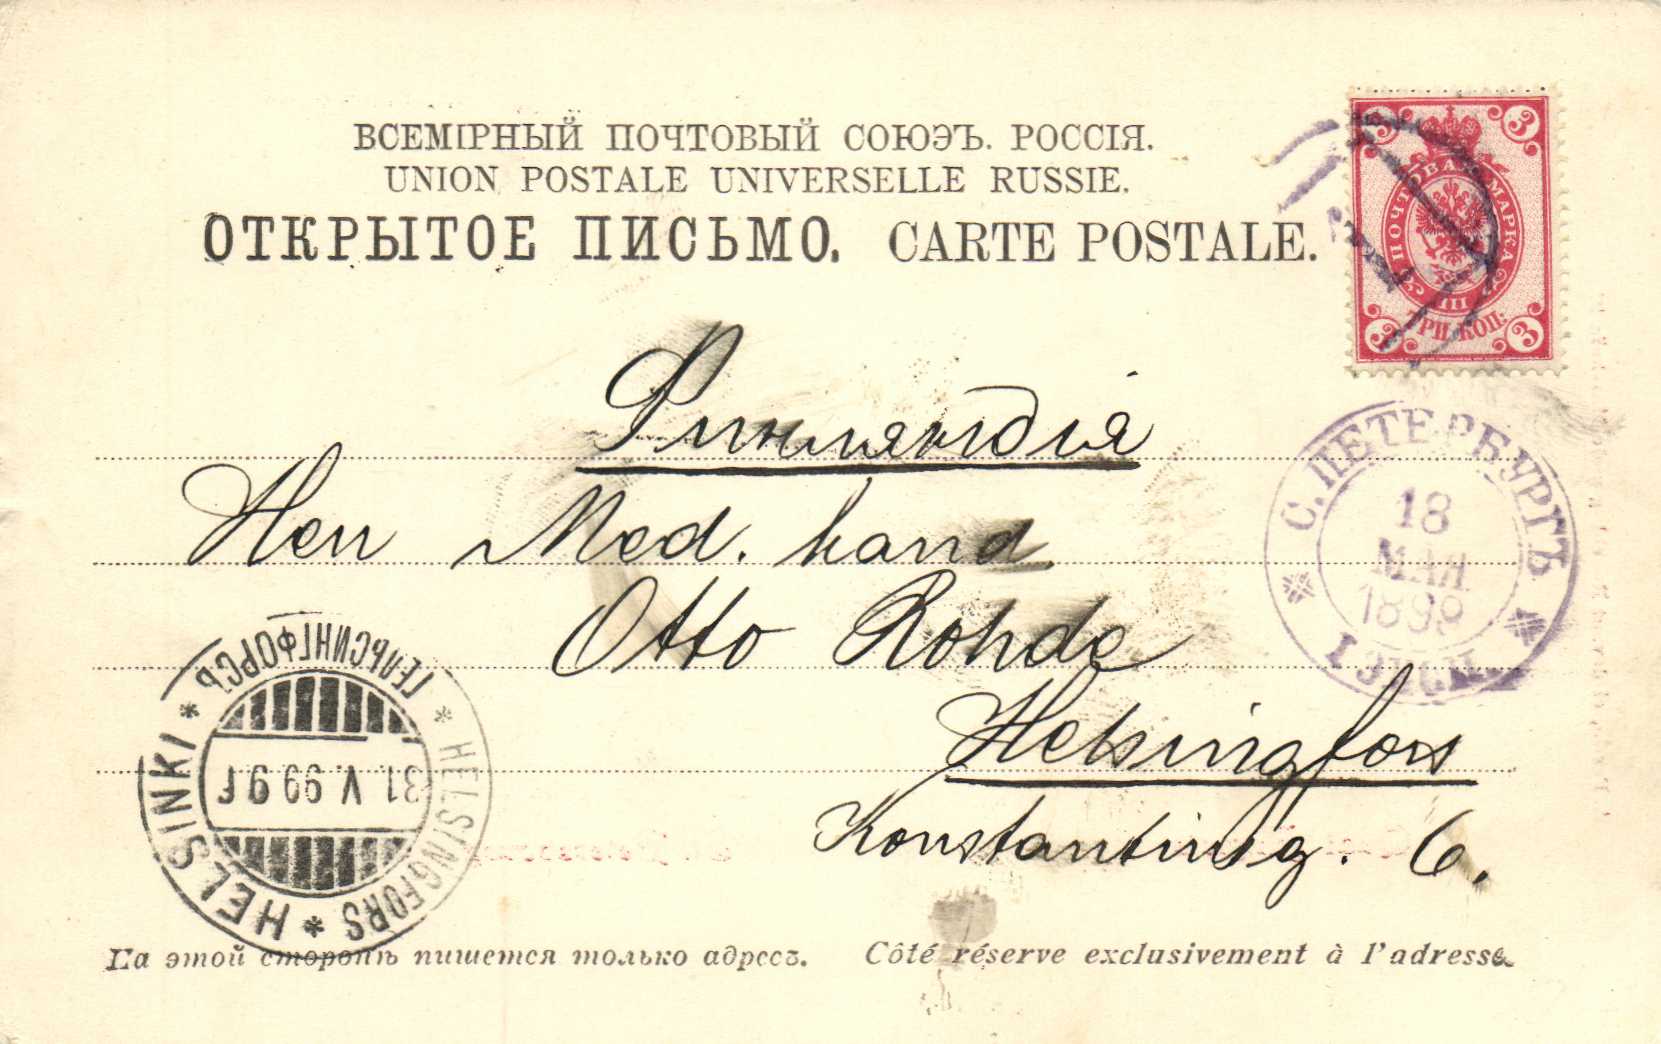 ВСЕМІРНЫЙ ПОЧТОВЫЙ СОЮЗЪ. РОССІЯ.
UNION POSTALE UNIVERSELLE RUSSIE.
ОТКРЫТОЕ ПИСЬМО. CARTE POSTALE.
3 3
ПОЧТОВАЯ МАРКА
III
ТРИ КОП:
3 3
Финляндія
Herr Med. kand.
Otto Rohde
Helsingfors
Konstantinsg. 6.
С. ПЕТЕРБУРГЪ
18
МАЯ
1899
ГЕЛЬСИНГФОРСЪ
HELSINKI * HELSINGFORS *
31. V. 99 9 f
На этой сторонѣ пишется только адресъ. Côté réserve exclusivement à l'adresse.